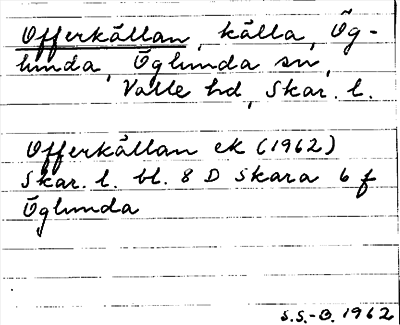 Offerkällan, källa, Ög-
lunda, Öglunda sn,
Valle hd, Skar. l.
Offerkällan ek (1962)
Skar. l. bl. 8 D Skara 6 f
Öglunda
S.S.-B. 1962